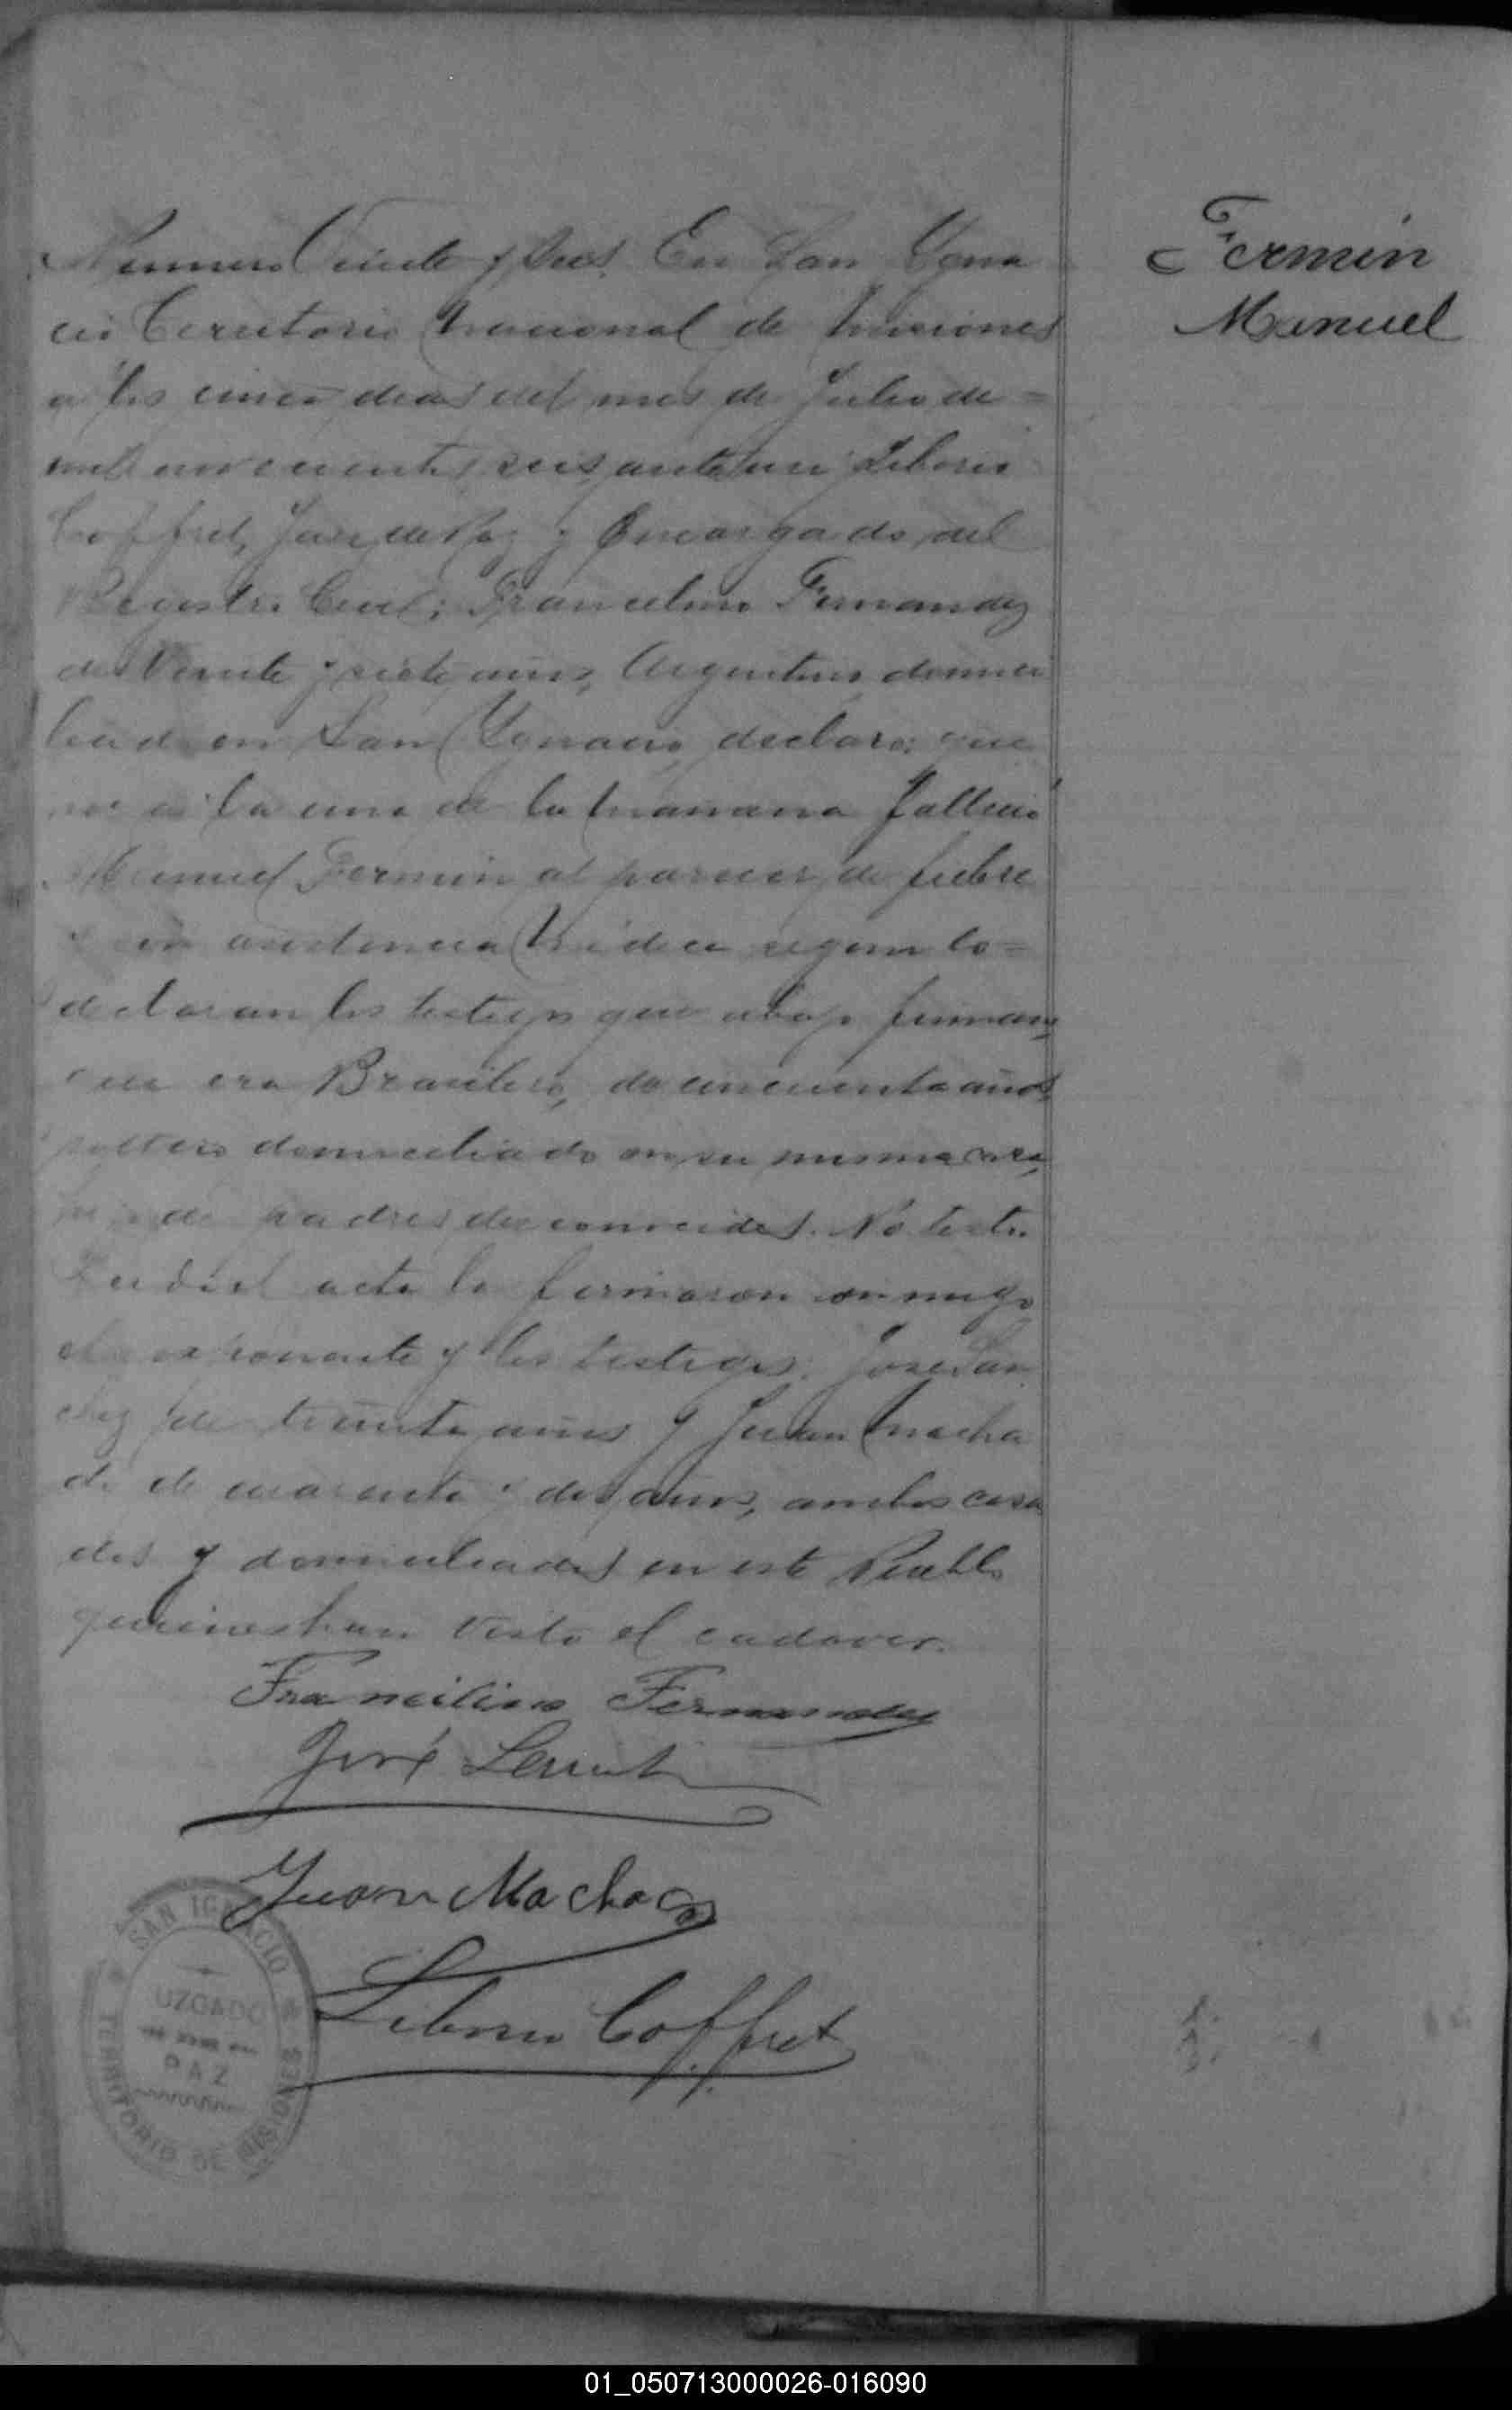 Fermin
Manuel
Numero Veinte y tres. En San Ygna
cio Territorio Nacional de Misiones
a los cinco dias del mes de Julio de =
mil novecientos seis, ante mi Liborio
Coffret, Juez de Paz y Encargado del
Registro Civil; Francelino Fernandez
de Veinte y siete años, Argentino domici
liado en San Ygnacio, declaro: que
hoy a la una de la mañana fallecio
Manuel Fermin al parecer de fiebre
sin asistencia Médica segun lo =
declaran los testigos que abajo firman,
que era Brasilero, de cincuenta años,
soltero domiciliado en su misma casa,
hijo de padres desconocidos. No testo.
Leida el acta la firmaron conmigo
el exponente y los testigos: Jose San
chez de treinta años y Juan Macha
do de cuarenta y dos años, ambos casa
dos y domiciliados en este Pueblo
quienes han visto el cadaver.
Francilino Fernandez
José
Juan Machado
Liborio Coffret
SAN IGNACIO
JUZGADO
DE
PAZ
TERRITORIO DE MISIONES
01_050713000026-016090